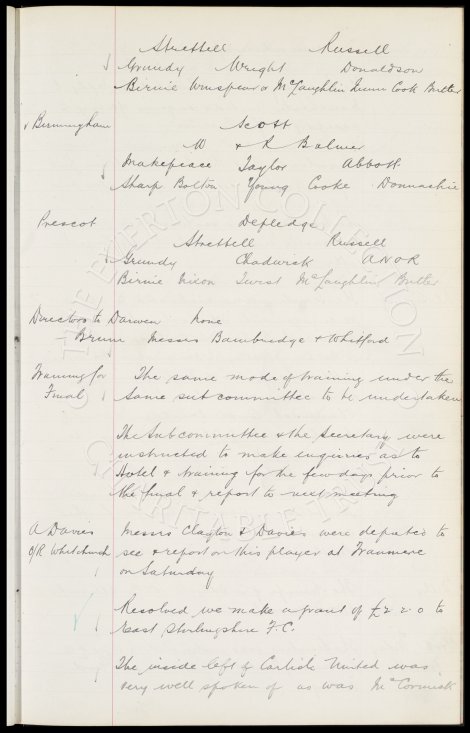 Strettell Russell
Grundy Wright Donaldson
Birnie Winspear o McLaughlin Quinn Cook Butler
Birmingham Scott
W & R Balmer
Makepeace Taylor Abbott
Sharp Bolton Young Cooke Donnachie
Prescot Depledge
Strettell Russell
Grundy Chadwick A N OR
Birnie Nixon Twist McLaughlin Butler
Directors to Darwen None
Brum Messrs Bainbridge & Whitford
Training for The same mode of training under the
Final same sub committee to be undertaken
The Sub committee & the Secretary were
instructed to make enquiries as to
Hotel & training for the few days prior to
the final & report to next meeting
A Davies Messrs Clayton & Davies were deputed to
O/R Whitchurch see & report on this player at Tranmere
on Saturday
Resolved we make a grant of £2 2. 0 to
East Stirlingshire F.C.
The inside left of Carlisle United was
very well spoken of as was McCormick
THE EVERTON COLLECTION
CHARITABLE TRUST